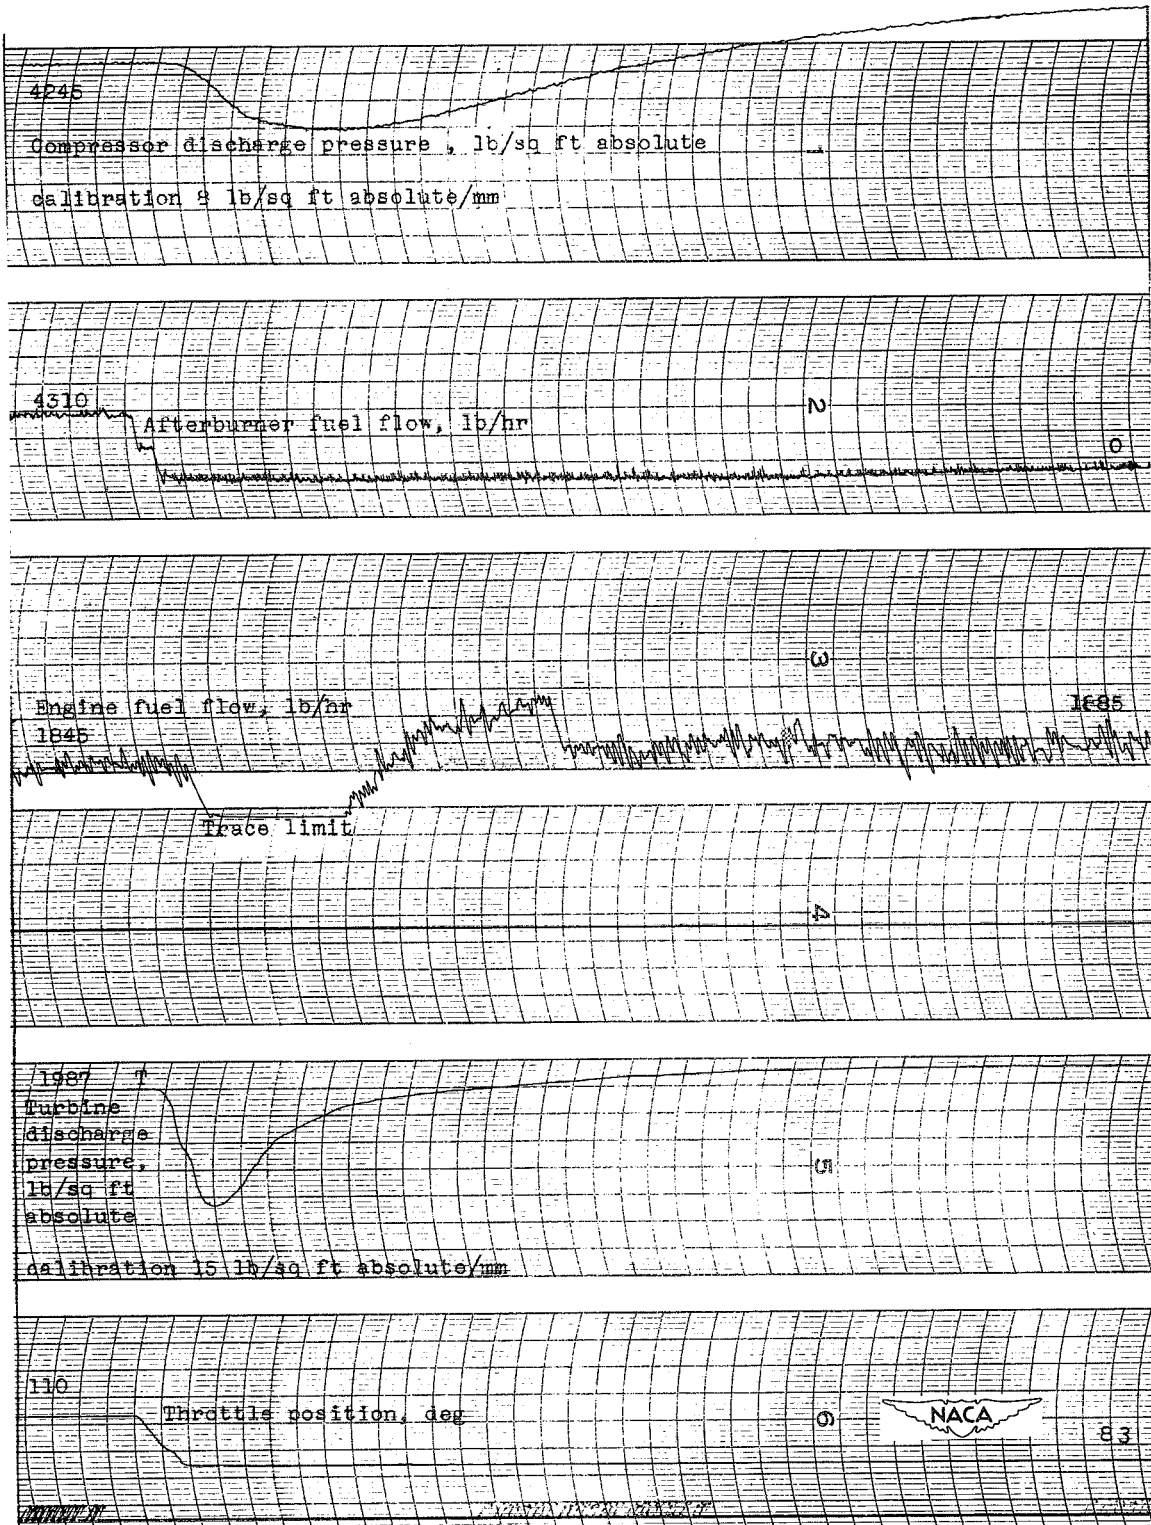 4245
Compressor discharge pressure , lb/sq ft absolute
1
calibration 8 lb/sq ft absolute/mm
4310
2
Afterburner fuel flow, lb/hr
0
3
Engine fuel flow, lb/hr
1845
1885
Trace limit
4
1987 T
Turbine
discharge
pressure,
lb/sq ft
absolute
5
calibration 15 lb/sq ft absolute/mm
110
Throttle position, deg
6
NACA
83